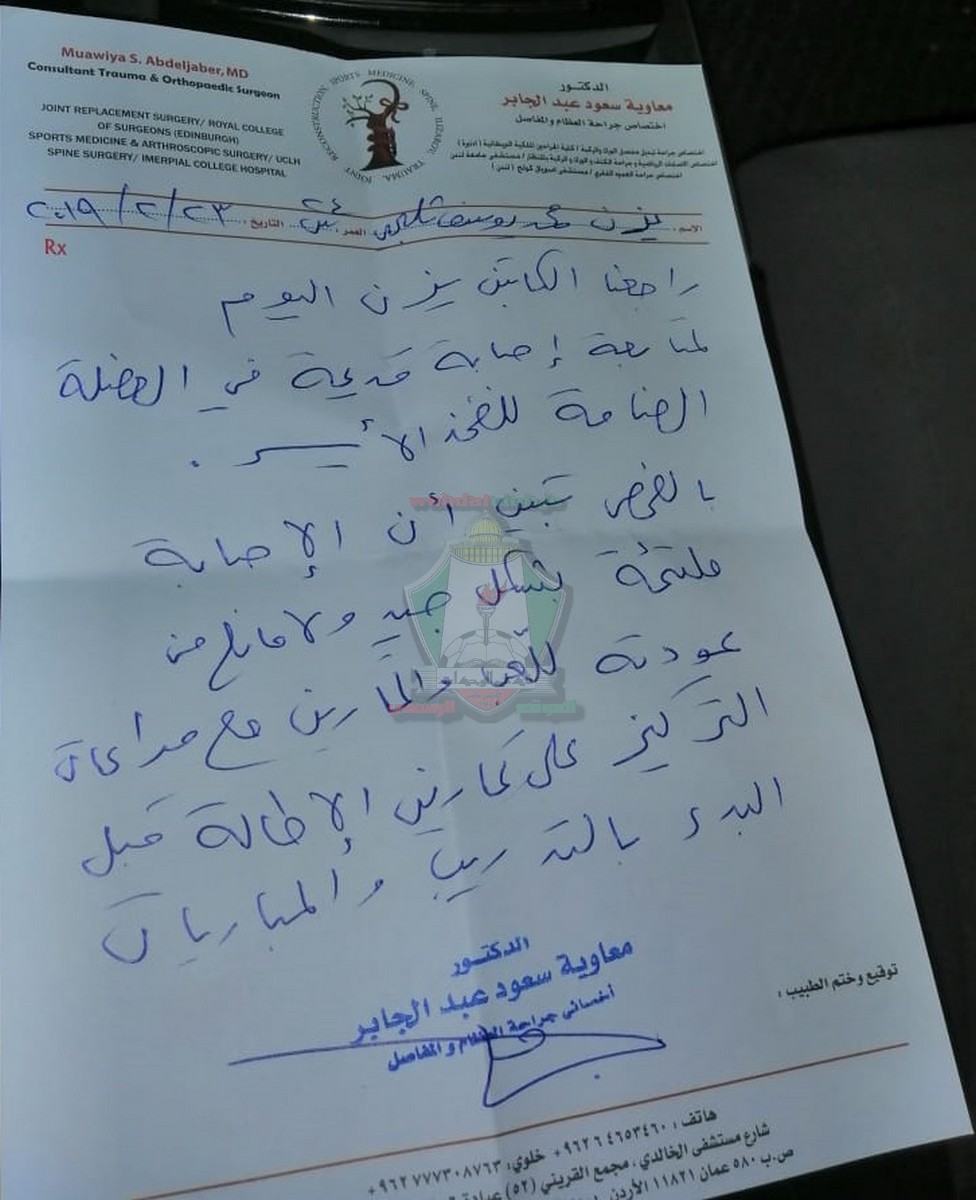 Muawiya S. Abdeljaber, MD
Consultant Trauma & Orthopaedic Surgeon
JOINT REPLACEMENT SURGERY/ ROYAL COLLEGE
OF SURGEONS (EDINBURGH)
SPORTS MEDICINE & ARTHROSCOPIC SURGERY/ UCLH
SPINE SURGERY/ IMERPIAL COLLEGE HOSPITAL
JOINT RECONSTRUCTION, SPORTS MEDICINE, SPINE, ILIZAROV, TRAUMA,
الدكتور
معاوية سعود عبد الجابر
اختصاص جراحة العظام والمفاصل
الاسم: يزن محمد يوسف العمر: ٢٤ سنة التاريخ: ٢٠١٩/٢/٢٣
Rx
راجعنا الكابتن يزن اليوم
لمتابعة إصابة قديمة في العضلة
الضامة للفخذ الأيسر.
بالفحص تبين أن الإصابة
ملتئمة بشكل جيد ولا مانع من
عودته للعب والتمارين مع مراعاة
التركيز على تمارين الإطالة قبل
البدء بالتدريب والمباريات
الدكتور
معاوية سعود عبد الجابر
أخصائي جراحة العظام والمفاصل
توقيع وختم الطبيب:
هاتف: ٤٦٥٣٤٦٠ ٦ ٩٦٢+ خلوي: ٩٦٢٧٧٧٣٠٨٧٦٣+
شارع مستشفى الخالدي، مجمع القريني (٥٢) عيادة
ص.ب ٥٨٠ عمان ١١٨٢١ الأردن